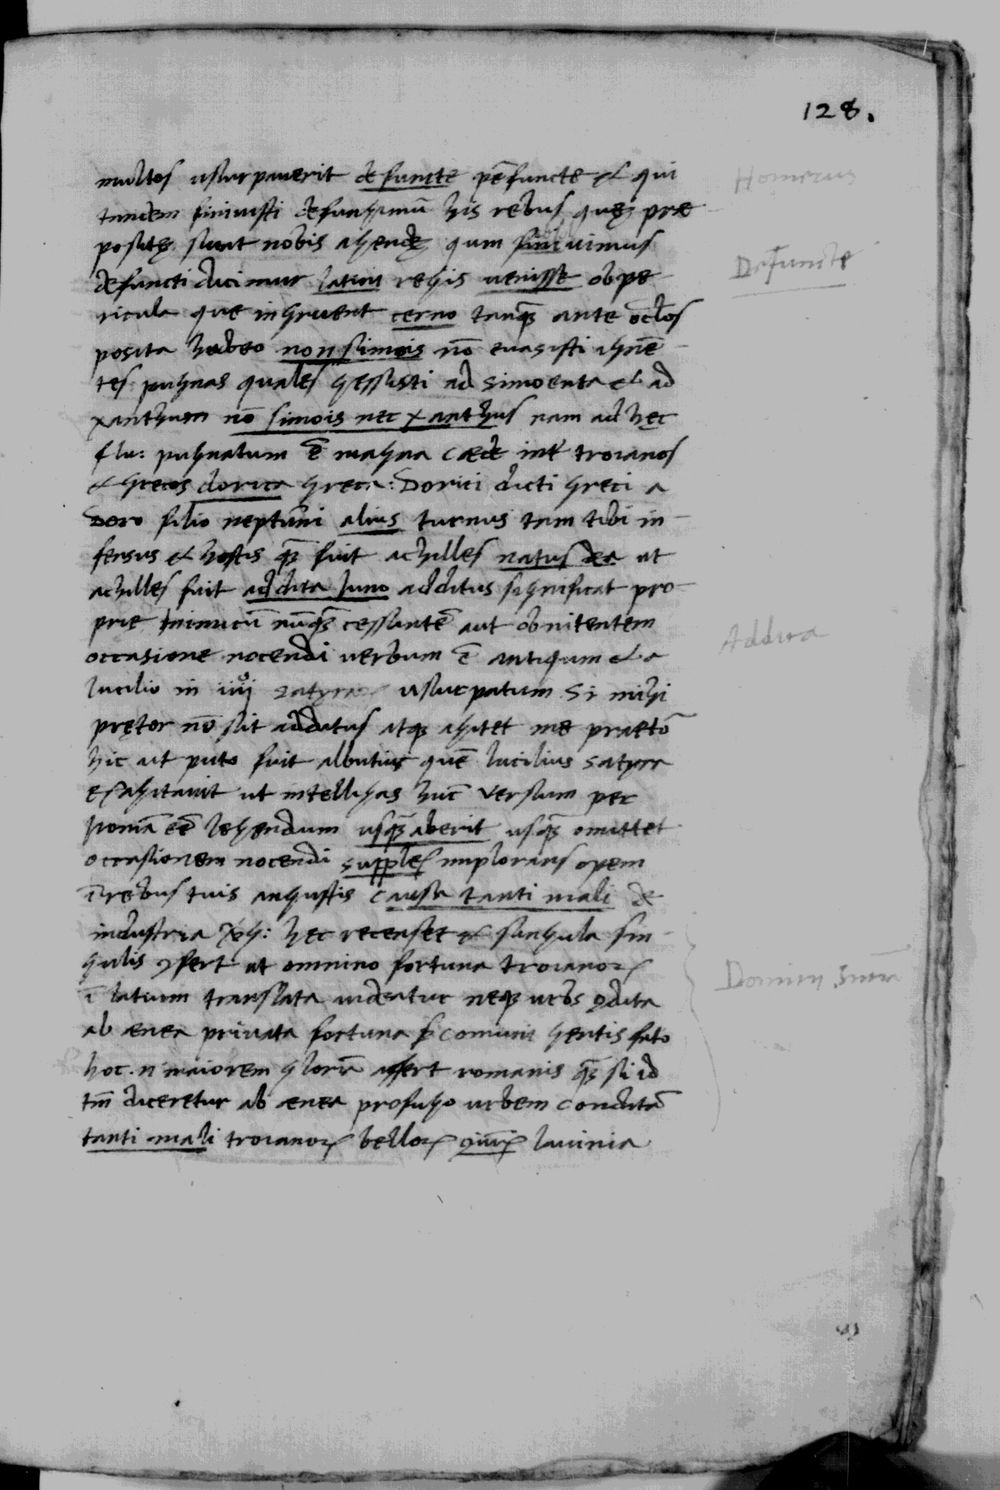 128.
multos usurpauerit defuncte pēfuncte & qui
Homerus
tandem finiuisti defungimur his rebus quę prae
positę sunt nobis agendę quum finiuimus
Defuncte
defuncti dicimur latini regis uenisse ob pe
ricula que ingruent cerno tanq̄ ante oc̄los
posita habeo non simois nō euasisti ignē
tes pugnas quales gessisti ad simoenta & ad
xanthum nō simois nec xanthus nam ad hęc
flu: pugnatum ē magna caede inter troianos
& grecos dorica greca: Dorici dicti greci a
Doro filio neptuni alius turnus tam tibi in
fensus & hostis q̄ fuit achilles natus dea ut
achilles fuit addita Iuno additus significat pro
prie inimicū nunq̄ cessantē aut obnitentem
Addita
occasione nocendi uerbum ē antiquum & a
lucilio in iiij satyra usurpatum Si mihi
pretor nō sit additus atq; agitet me praetō
hic ut puto fuit albutius quē lucilius satyra
exagitauit ut intelligas hūc uersum per
Ironiā eē legendum usq̄ aberit usq̄ omittet
occasionem nocendi supplex implorans opem
ī rebus tuis angustis causa tanti mali de
industria Virg: hęc recenset & singula sin
gulis ꝯfert ut omnino fortuna troianoꝝ
Domini summa
ī latium translata uideatur neq; urbs ꝯdita
ab aenea priuata fortuna s; comuni gentis fato
hoc .n. maiorem gloriā affert romanis q̄ si id
tm̄ diceretur ab aenea profugo urbem conditā
tanti mali troianoꝝ belloꝝ ꝯiux lauinia